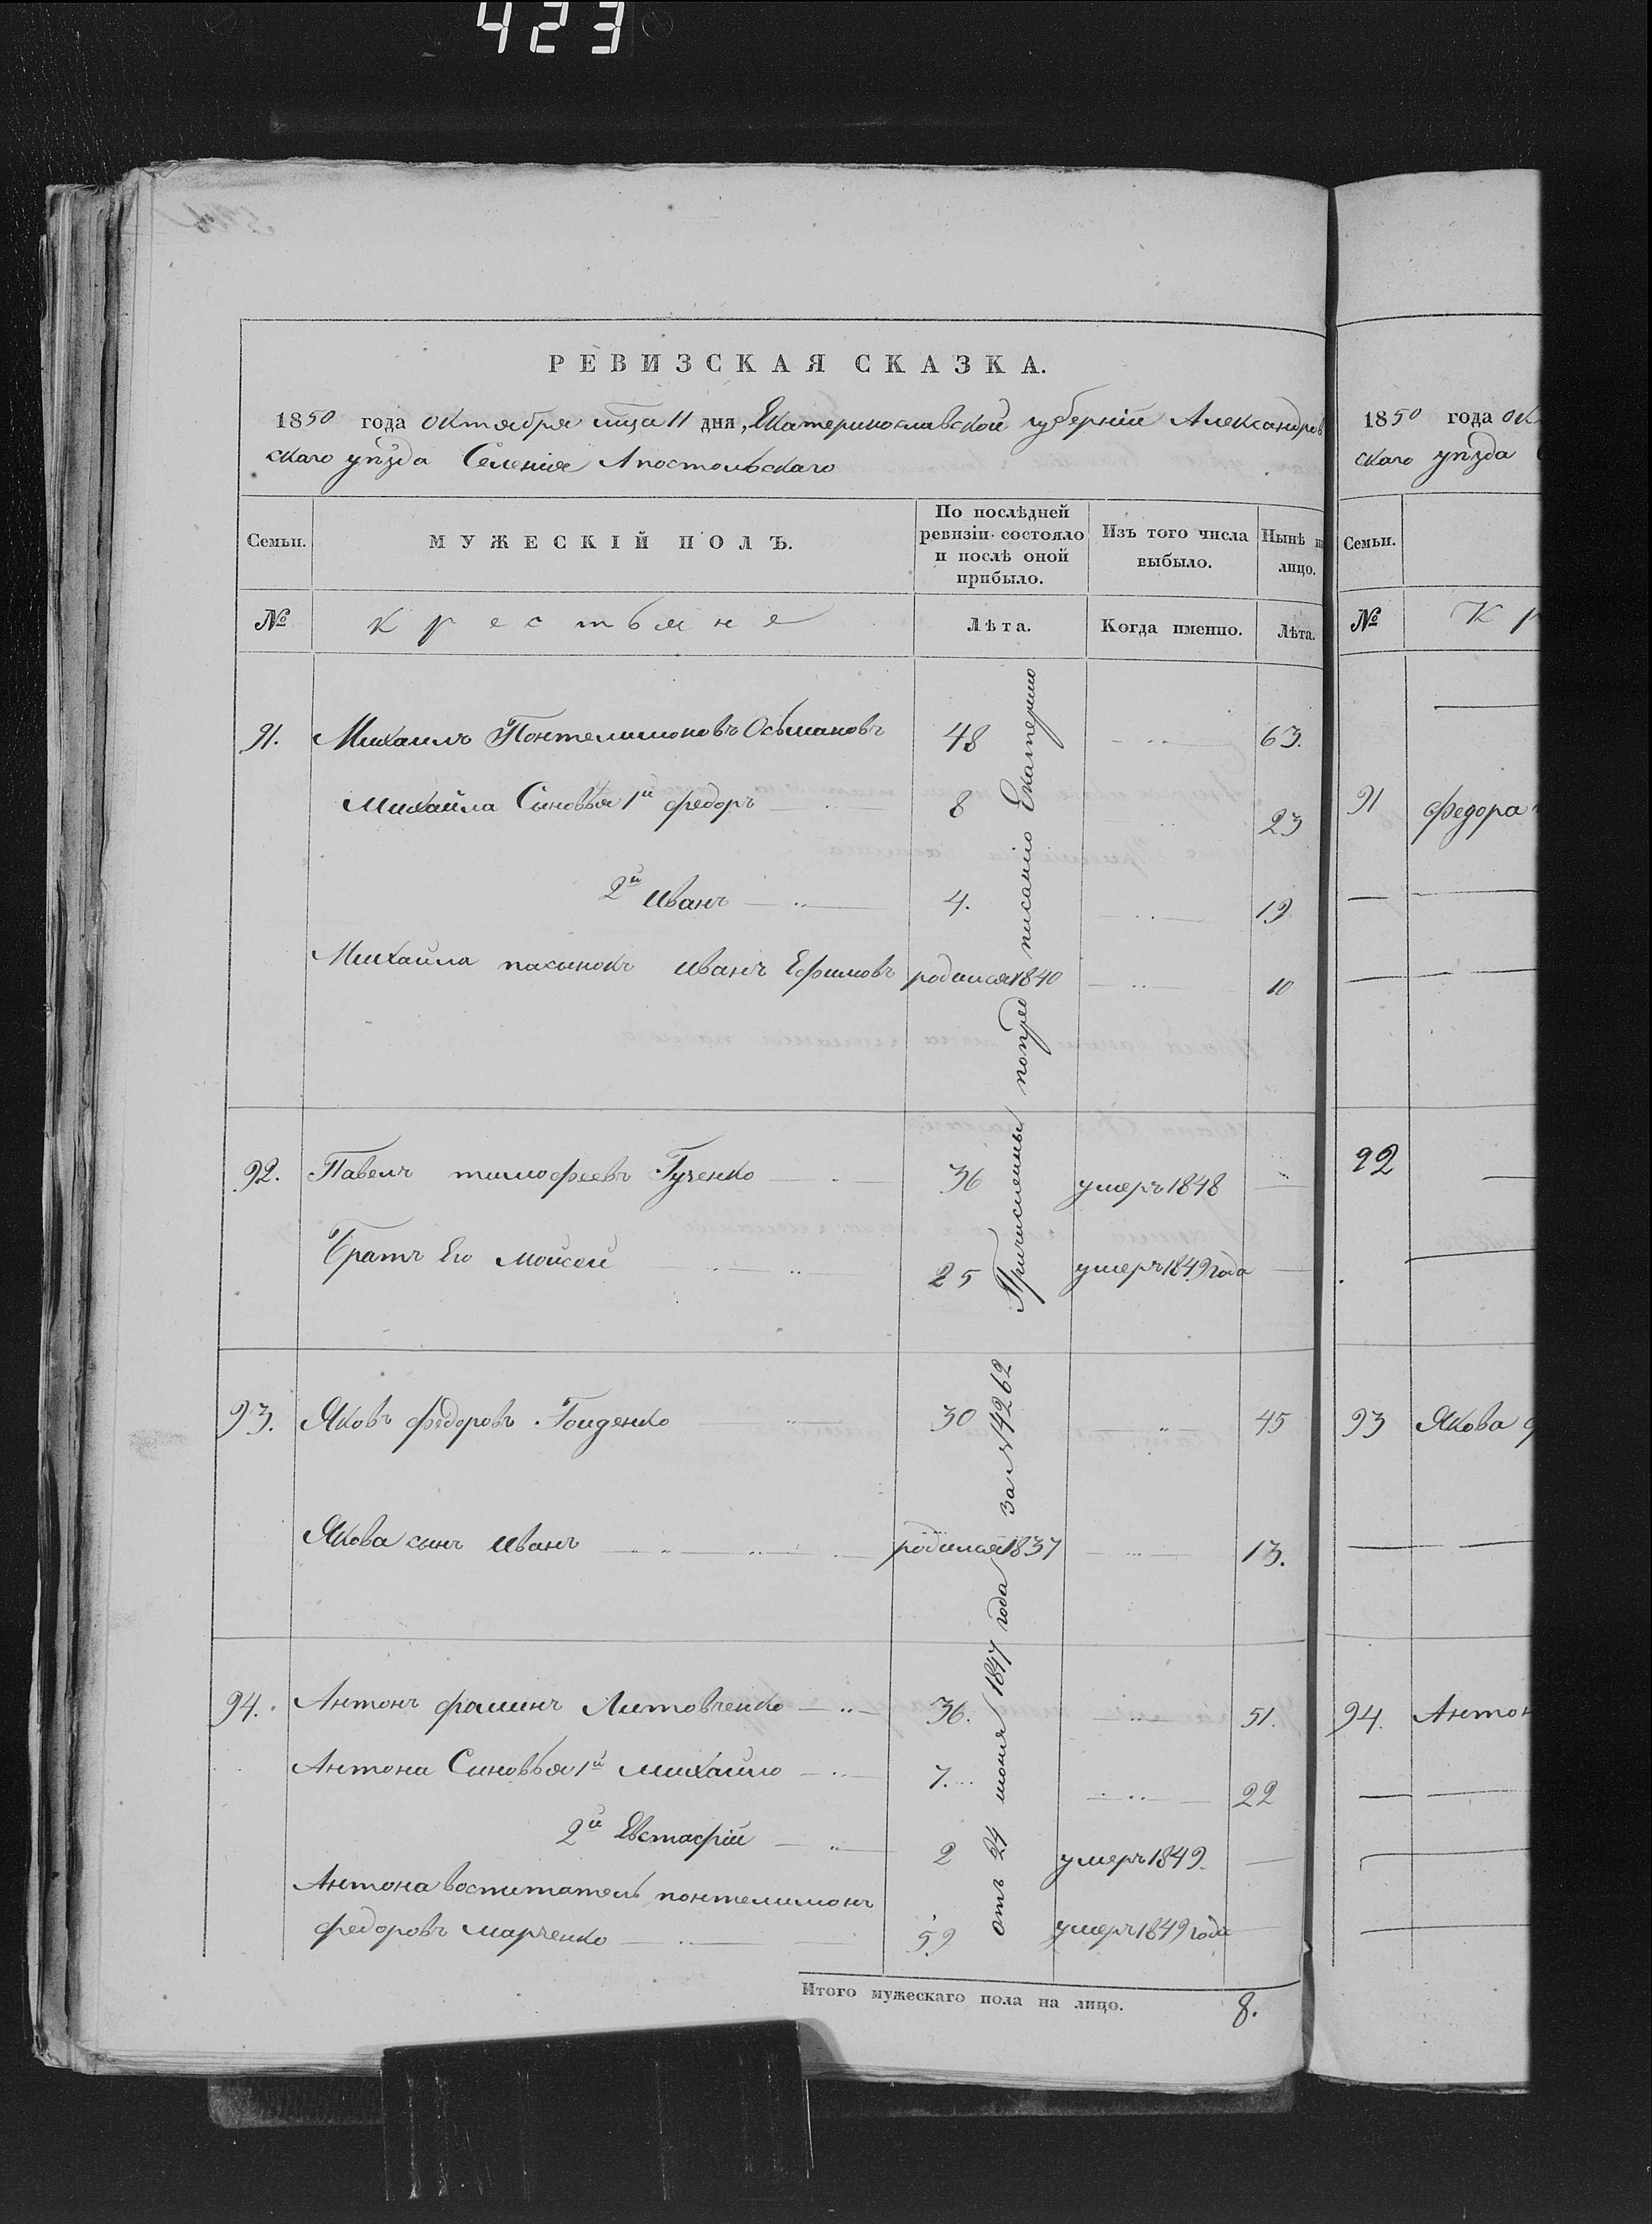 423
РЕВИЗСКАЯ СКАЗКА.
1850 года октября мца 11 дня, Екатеринославской губерніи Александров
скаго уѣзда Селенія Апостольскаго
Семьи.
МУЖЕСКІЙ ПОЛЪ.
По послѣдней ревизіи состояло и послѣ оной прибыло.
Изъ того числа выбыло.
Нынѣ на лицо.
№ крестьяне Лѣта. Когда именно. Лѣта.
91. Михаилъ Понтелимоновъ 48 63.
Михайла Синовья 1й федоръ 8 23
2й Иванъ 4. 19
Михайла пасынокъ иванъ Ефимовъ родился 1840 10
92. Павелъ тимофеевъ Гученко 36 умеръ 1848
Братъ Его Мойсей 25 умеръ 1849 года
93. Яковъ федоровъ Гонденко 30 45
Якова сынъ Иванъ родился 1837 13.
94. Антонъ фоминъ Литовченко 36. 51.
Антона Синовья 1й Михайло 7. 22
2й Евстафій 2 умеръ 1849.
Антона воспитатель понтелимонъ
федоровъ марченко 59 умеръ 1849 года
Причисленны попред писанію Екатерино
отъ 24 июня 1847 года за № 14262
Итого мужескаго пола на лицо. 8.
1850 года ок
скаго уѣзда
Семьи.
№ К р
91 федора
92
93 Якова
94. Антон